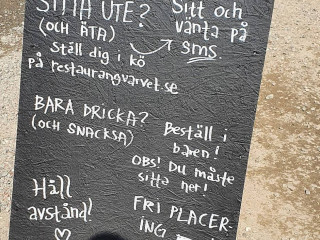 SITTA UTE?
(OCH ÄTA)
Ställ dig i kö
på restaurangvarvet.se
Sitt och
vänta på
sms.
BARA DRICKA?
(OCH SNACKSA)
Beställ i
baren!
OBS! Du måste
sitta ner!
Håll
avstånd!
FRI PLACER-
ING